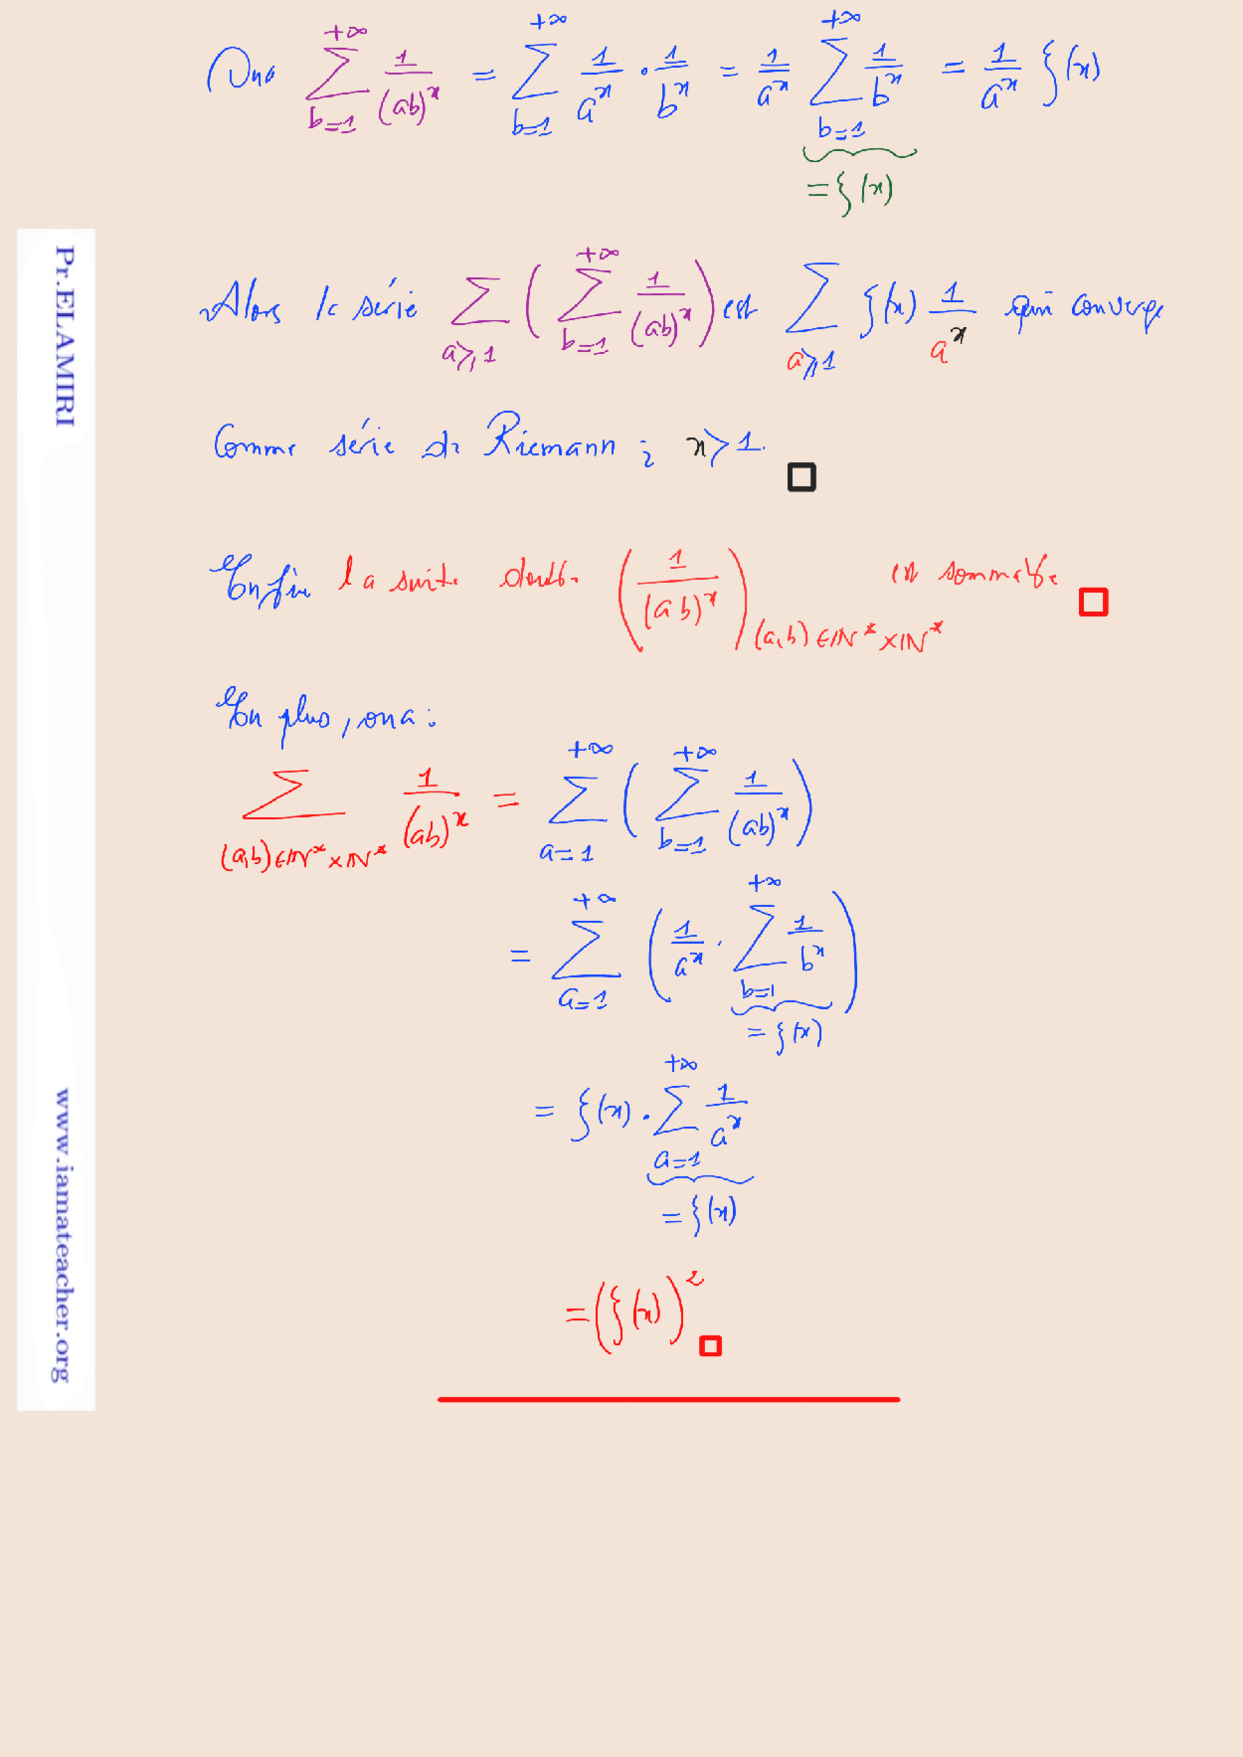 Ona $\sum_{b=1}^{+\infty} \frac{1}{(ab)^x} = \sum_{b=1}^{+\infty} \frac{1}{a^x} \cdot \frac{1}{b^x} = \frac{1}{a^x} \underbrace{\sum_{b=1}^{+\infty} \frac{1}{b^x}}_{= \zeta(x)} = \frac{1}{a^x} \zeta(x)$
Alors la série $\sum_{a \geqslant 1} \left( \sum_{b=1}^{+\infty} \frac{1}{(ab)^x} \right)$ est $\sum_{a \geqslant 1} \zeta(x) \frac{1}{a^x}$ qui converge
Comme série de Riemann ; $x > 1$. □
Enfin la suite double $\left( \frac{1}{(ab)^x} \right)_{(a,b) \in \mathbb{N}^* \times \mathbb{N}^*}$ est sommable □
En plus, ona :
$\sum_{(a,b) \in \mathbb{N}^* \times \mathbb{N}^*} \frac{1}{(ab)^x} = \sum_{a=1}^{+\infty} \left( \sum_{b=1}^{+\infty} \frac{1}{(ab)^x} \right)$
$= \sum_{a=1}^{+\infty} \left( \frac{1}{a^x} \cdot \underbrace{\sum_{b=1}^{+\infty} \frac{1}{b^x}}_{= \zeta(x)} \right)$
$= \zeta(x) \cdot \underbrace{\sum_{a=1}^{+\infty} \frac{1}{a^x}}_{= \zeta(x)}$
$= \left( \zeta(x) \right)^2$ □
Pr.ELAMIRI
www.iamateacher.org